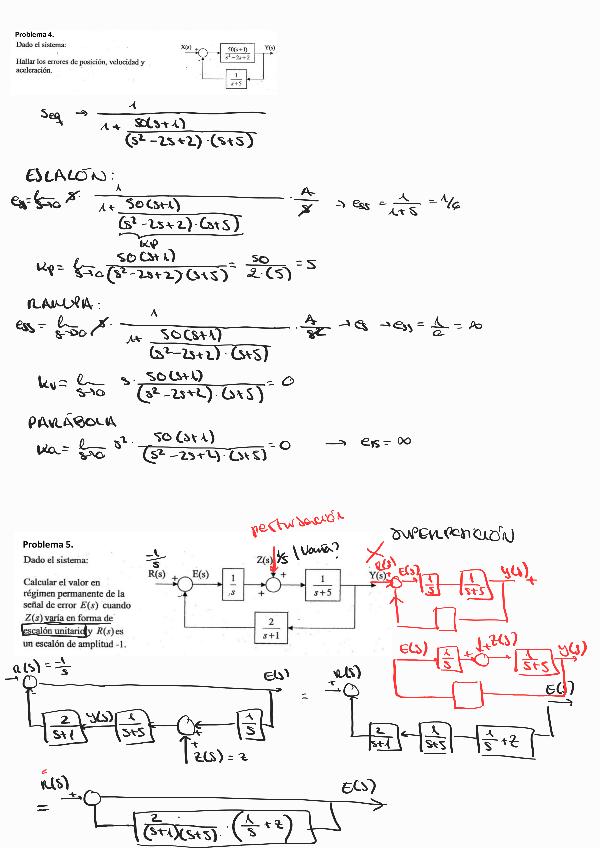 Problema 4.
Dado el sistema:
Hallar los errores de posición, velocidad y
aceleración.
X(s) + - 50(s+1) / s²-2s+2 Y(s)
1 / s+5
Seq → 1 / (1 + 50(s+1) / (s²-2s+2)·(s+5))
ESCALÓN:
ess = lim s→0 s · 1 / (1 + 50(s+1) / (s²-2s+2)·(s+5)) · A/s → ess = 1/(1+5) = 1/6
Kp
Kp = lim s→0 50(s+1) / (s²-2s+2)(s+5) = 50 / 2·(5) = 5
RAMPA:
ess = lim s→0 s · 1 / (1 + 50(s+1) / (s²-2s+2)·(s+5)) · A/s² → ess = 1/0 = ∞
Kv = lim s→0 s · 50(s+1) / (s²-2s+2)·(s+5) = 0
PARÁBOLA
Ka = lim s→0 s² · 50(s+1) / (s²-2s+2)·(s+5) = 0 → ess = ∞
perturbación
SUPERPOSICIÓN
Problema 5.
Dado el sistema:
Calcular el valor en
régimen permanente de la
señal de error E(s) cuando
Z(s) varía en forma de
escalón unitario y R(s) es
un escalón de amplitud -1.
-1/s
R(s) + - E(s) 1/s Z(s) + + 1/s+5 Y(s)
1/s ¿Varía?
2 / s+1
R(s) + E(s) 1/s 1/s+5 Y(s) +
E(s) 1/s + + Z(s) 1/s+5 Y(s)
R(s) = -1/s E(s)
2/s+1 Y(s) 1/s+5 + + 1/s
Z(s) = z
= R(s) + E(s)
2/s+1 1/s+5 1/s + z
= R(s) + E(s)
2 / (s+1)(s+5) · (1/s + z)